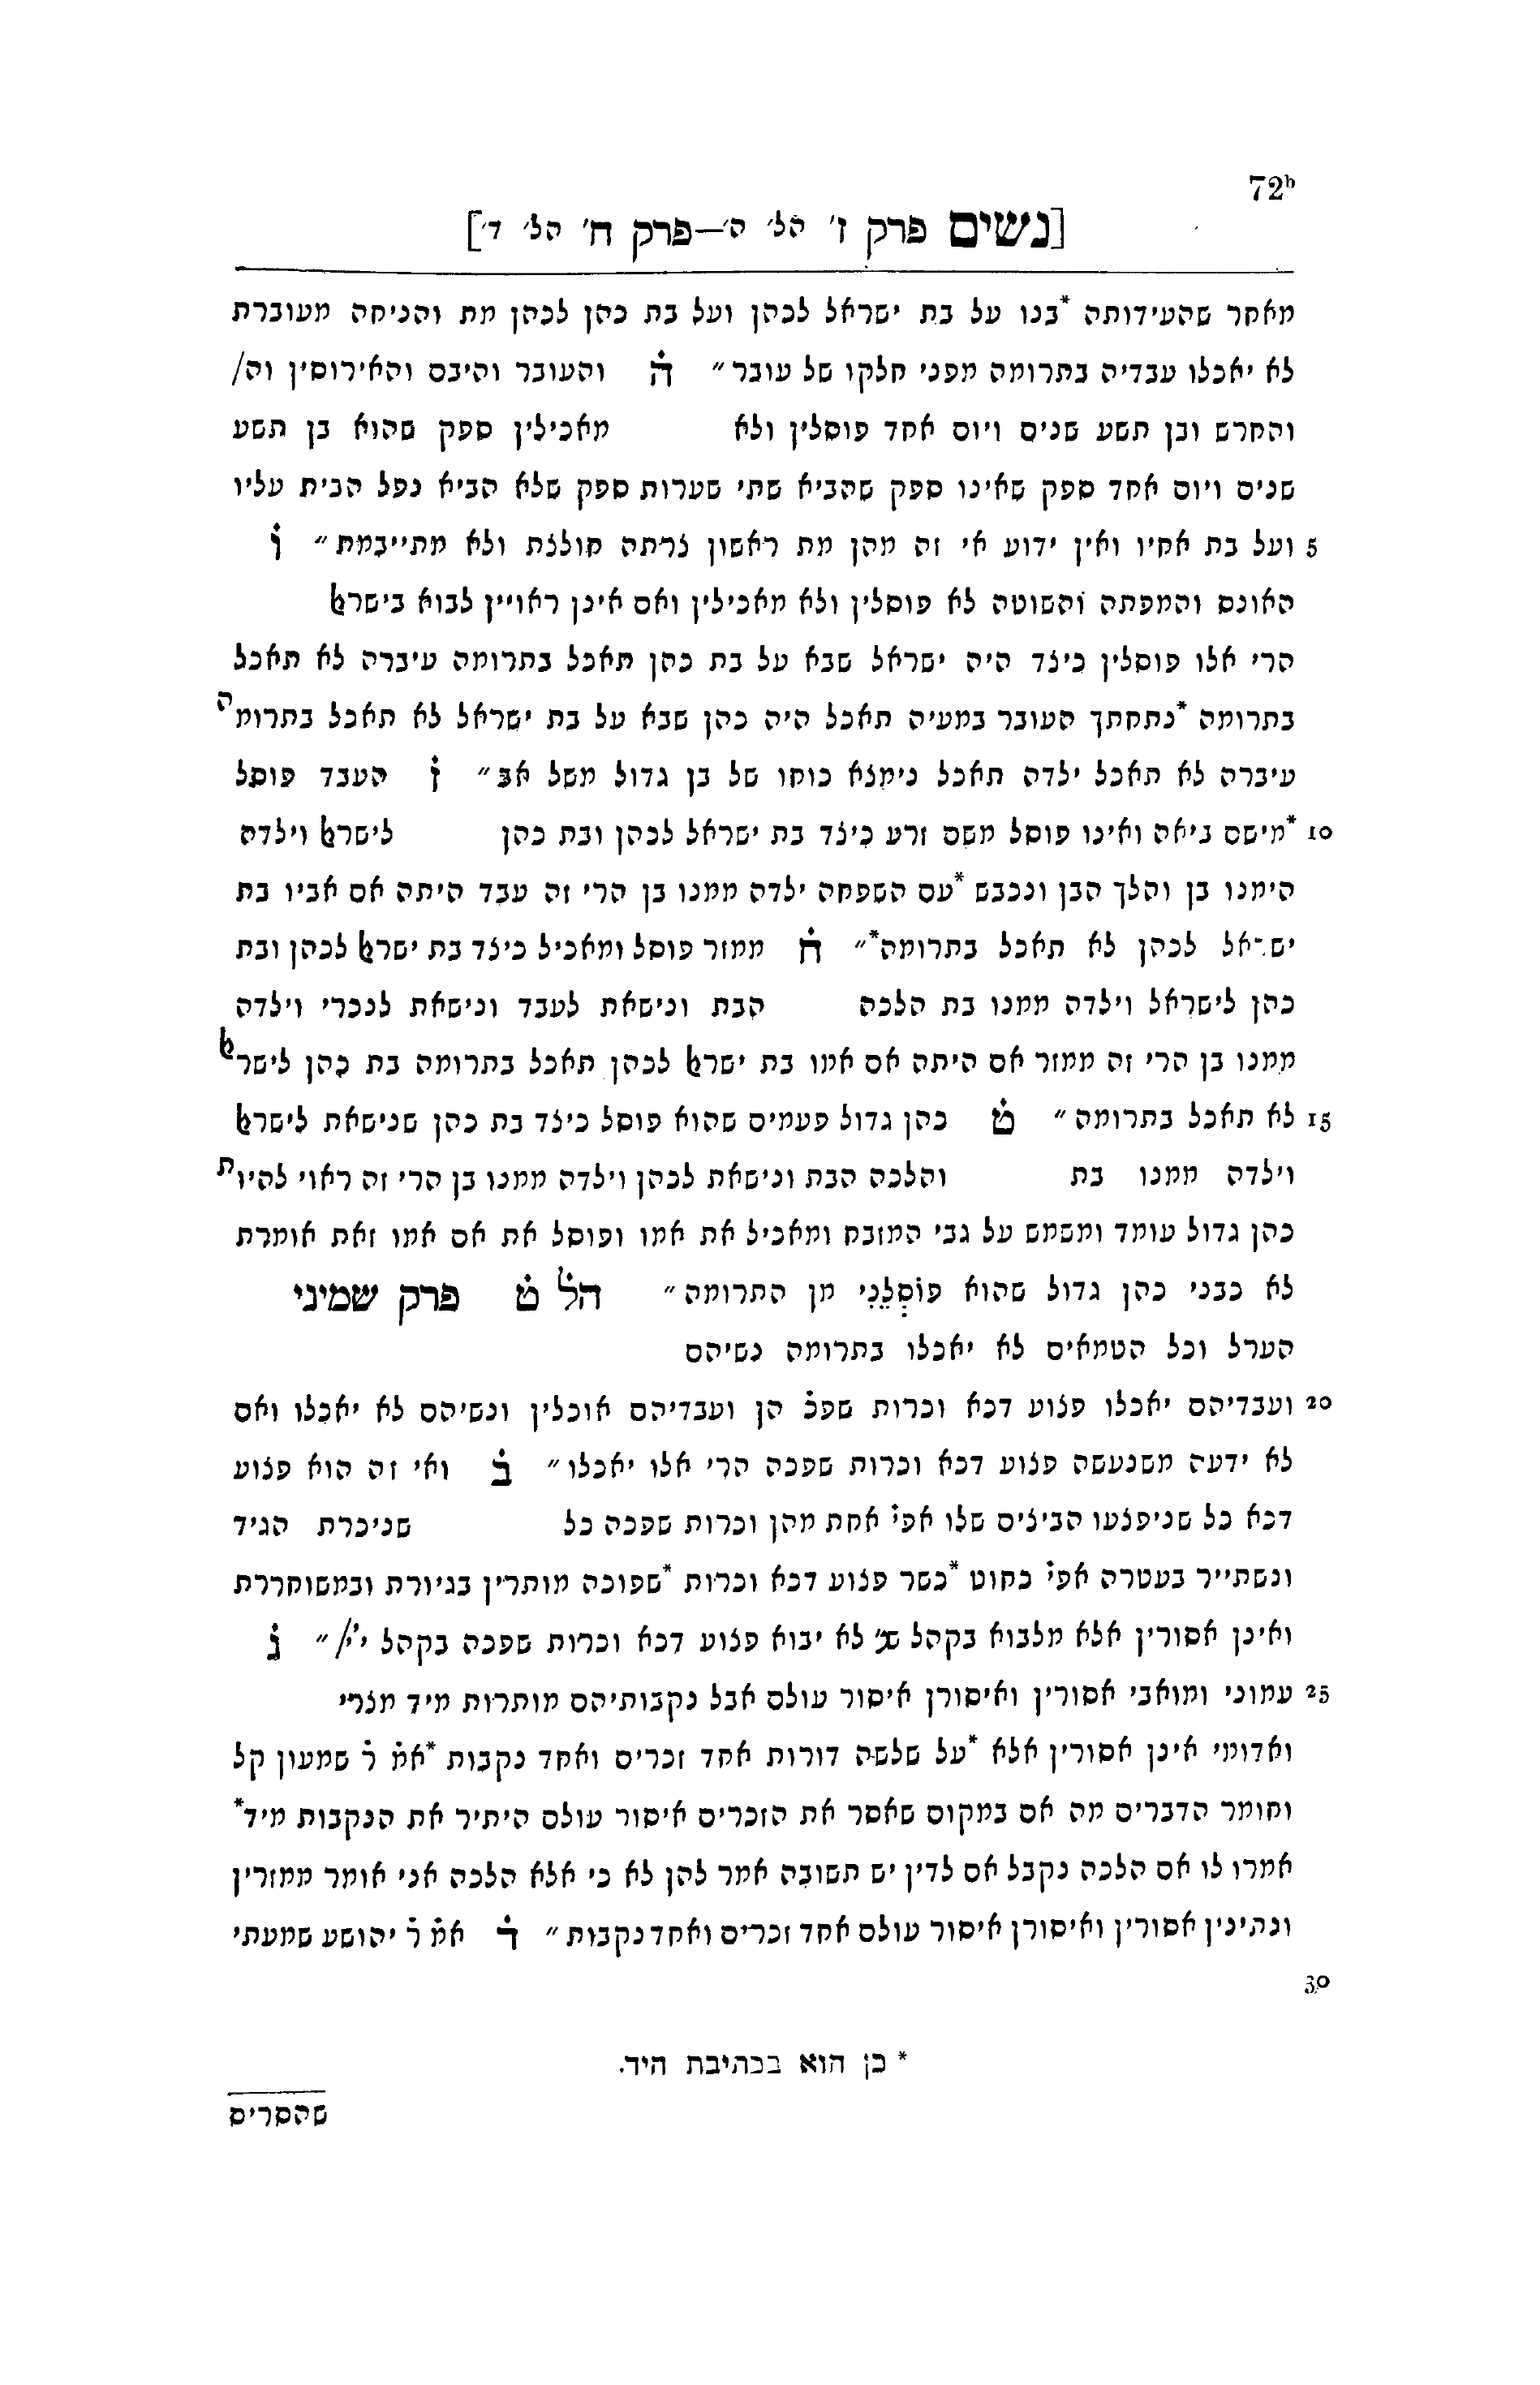 72b
[נשים פרק ז׳ הל׳ ה׳—פרק ח׳ הל׳ ד׳]
מאחר שהעידותה *בנו על בת ישראל לכהן ועל בת כהן לכהן מת והניחה מעוברת
לא יאכלו עבדיה בתרומה מפני חלקו של עובר״ ה והעובר והיבם והאירוסין וה/
והחרש ובן תשע שנים ויום אחד פוסלין ולא מאכילין ספק שהוא בן תשע
שנים ויום אחד ספק שאינו ספק שהביא שתי שערות ספק שלא הביא נפל הבית עליו
5 ועל בת אחיו ואין ידוע אי זה מהן מת ראשון צרתה חולצת ולא מתייבמת״ ו
האונס והמפתה והשוטה לא פוסלין ולא מאכילין ואם אינן ראויין לבוא בישראל
הרי אלו פוסלין כיצד היה ישראל שבא על בת כהן תאכל בתרומה עיברה לא תאכל
בתרומה *נתחתך העובר במעיה תאכל היה כהן שבא על בת ישראל לא תאכל בתרומה
עיברה לא תאכל ילדה תאכל נימצא כוחו של בן גדול משל אב״ ז העבד פוסל
10 *מישם ביאה ואינו פוסל משם זרע כיצד בת ישראל לכהן ובת כהן לישראל וילדה
הימנו בן והלך הבן ונכבש *עם השפחה ילדה ממנו בן הרי זה עבד היתה אם אביו בת
ישראל לכהן לא תאכל בתרומה*״ ח ממזר פוסל ומאכיל כיצד בת ישראל לכהן ובת
כהן לישראל וילדה ממנו בת הלכה הבת ונישאת לעבד ונישאת לנכרי וילדה
ממנו בן הרי זה ממזר אם היתה אם אמו בת ישראל לכהן תאכל בתרומה בת כהן לישראל
15 לא תאכל בתרומה״ ט כהן גדול פעמים שהוא פוסל כיצד בת כהן שנישאת לישראל
וילדה ממנו בת והלכה הבת ונישאת לכהן וילדה ממנו בן הרי זה ראוי להיות
כהן גדול עומד ומשמש על גבי המזבח ומאכיל את אמו ופוסל את אם אמו זאת אומרת
לא כבני כהן גדול שהוא פוסלני מן התרומה״ הל ט פרק שמיני
הערל וכל הטמאים לא יאכלו בתרומה נשיהם
20 ועבדיהם יאכלו פצוע דכא וכרות שפכ הן ועבדיהם אוכלין ונשיהם לא יאכלו ואם
לא ידעה משנעשה פצוע דכא וכרות שפכה הרי אלו יאכלו״ ב ואי זה הוא פצוע
דכא כל שניפצעו הביצים שלו אפי׳ אחת מהן וכרות שפכה כל שניכרת הגיד
ונשתייר בעטרה אפי׳ כחוט *כשר פצוע דכא וכרות *שפוכה מותרין בגיורת ובמשוחררת
ואינן אסורין אלא מלבוא בקהל שנ׳ לא יבוא פצוע דכא וכרות שפכה בקהל יי׳/״ ג
25 עמוני ומואבי אסורין ואיסורן איסור עולם אבל נקבותיהם מותרות מיד מצרי
ואדומי אינן אסורין אלא *על שלשה דורות אחד זכרים ואחד נקבות *אמ׳ ר׳ שמעון קל
וחומר הדברים מה אם במקום שאסר את הזכרים איסור עולם היתיר את הנקבות מיד*
אמרו לו אם הלכה נקבל אם לדין יש תשובה אמר להן לא כי אלא הלכה אני אומר ממזרין
ונתינין אסורין ואיסורן איסור עולם אחד זכרים ואחד נקבות״ ד אמ׳ ר׳ יהושע שמעתי
30
* כן הוא בכתיבת היד.
שהסריס